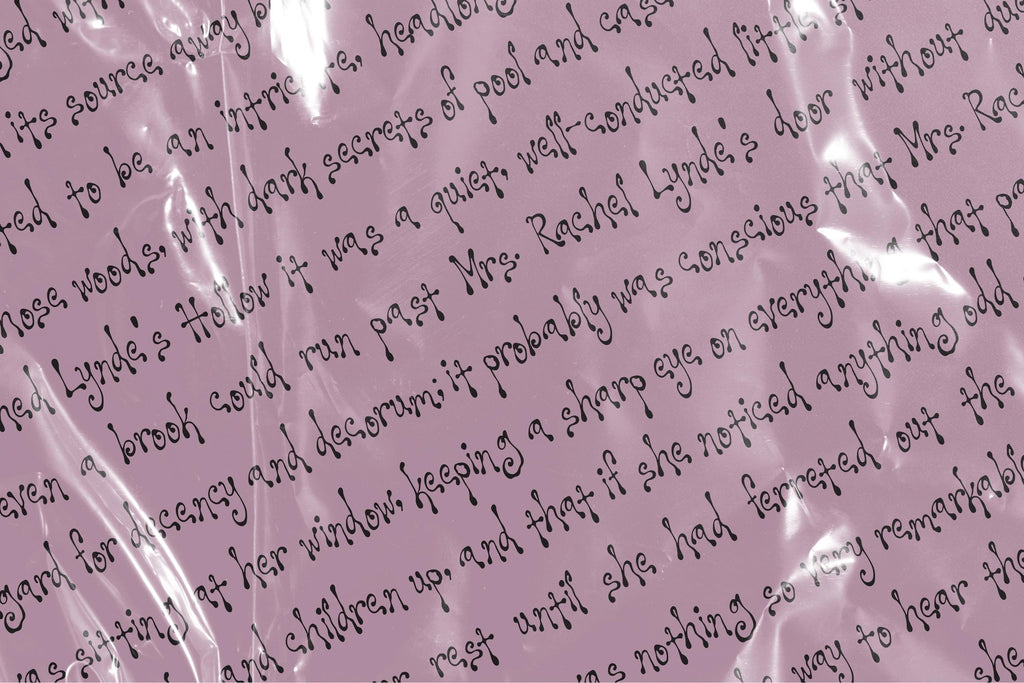 its source away
to be an intricate, headlong
hose woods, with dark secrets of pool and casca
Lynde's Hollow it was a quiet, well-conducted little st
even a brook could run past Mrs. Rachel Lynde's door without due
gard for decency and decorum; it probably was conscious that Mrs. Rac
as sitting at her window, keeping a sharp eye on everything that pa
and children up, and that if she noticed anything odd
rest until she had ferreted out the
as nothing so very remarkabl
way to hear the
she